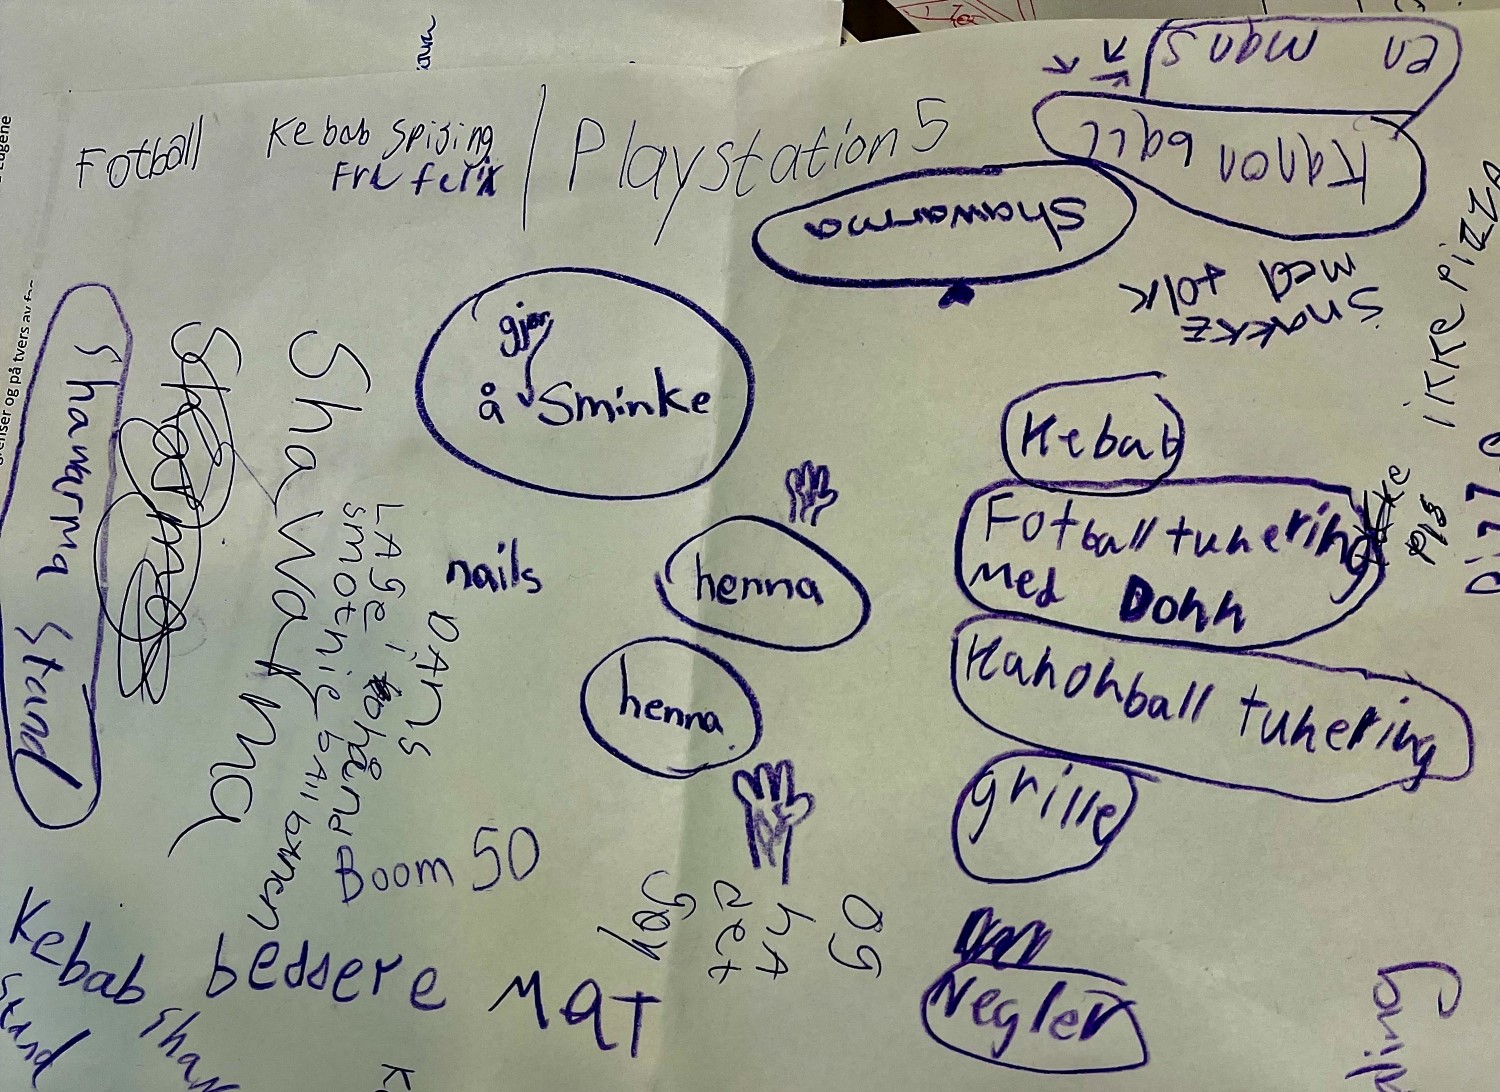 Fotball
Kebab spising
Fri ferix
Playstation 5
en mans
Kanon ball
Shawarma
Snakke
med folk
IKKE PIZZA
gjør
å Sminke
Kebab
Fotball tunering
Med Donn
ikke
pls
Kanonball tunering
grille
Negler
nails
henna
henna
Shawarma Stand
Shawarma
DANS
LAge i
smothie bAll bANEN
Boom 50
og
hA
det
gøy
bedsere MAT
Kebab
stand